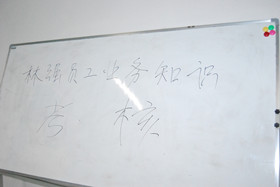 林强员工业务知识
考核